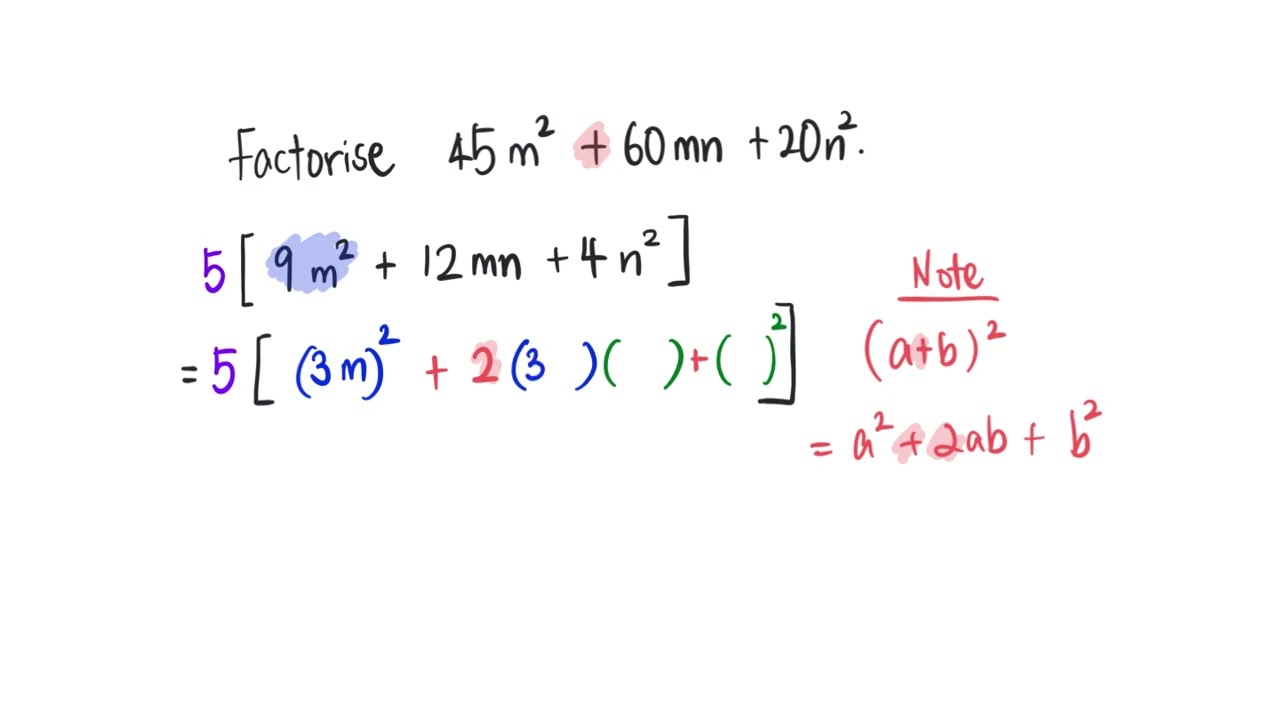 Factorise 45m² + 60mn + 20n².
5[9m² + 12mn + 4n²]
= 5[(3m)² + 2(3 )( )+( )²]
Note
(a+b)²
= a² + 2ab + b²